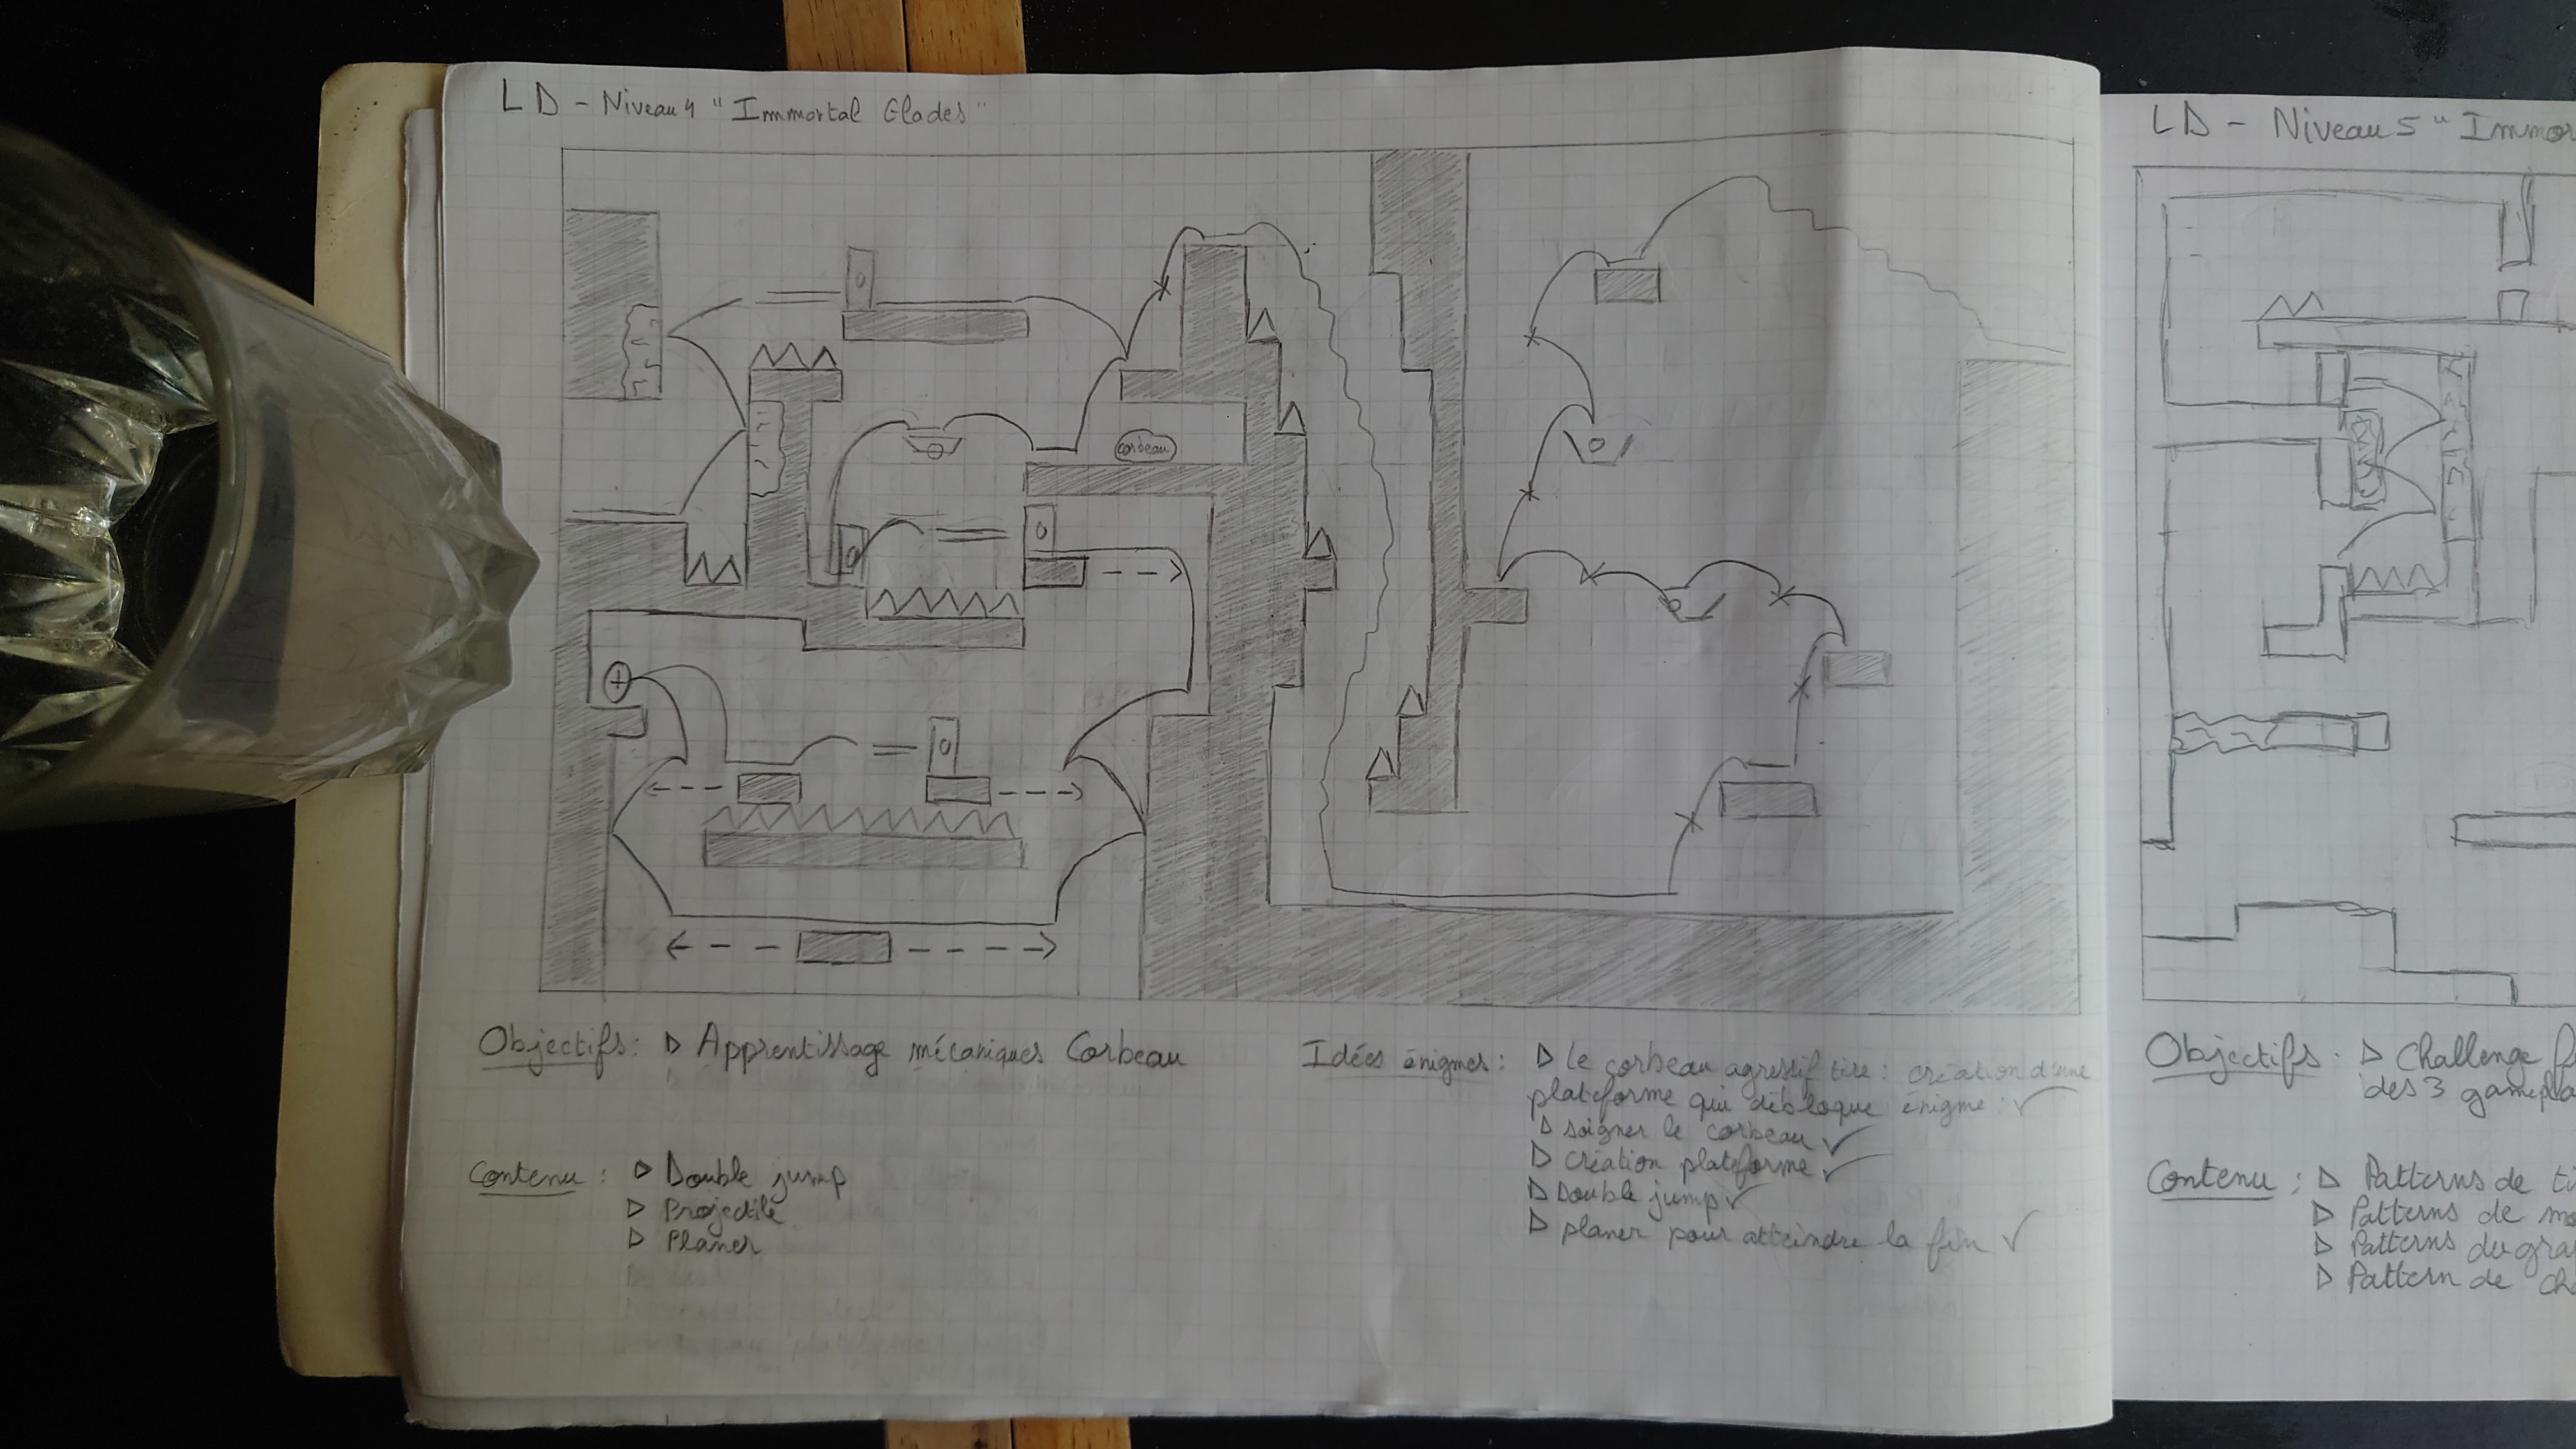 LD - Niveau 4 "Immortal Glades"
corbeau
Objectifs: ▷ Apprentissage mécaniques Corbeau
Contenu : ▷ Double jump
▷ Projectile
▷ Planer
Idées énigmes : ▷ le corbeau agressif tire : création d'une
plateforme qui débloque énigme : ✓
▷ soigner le corbeau ✓
▷ création plateforme ✓
▷ Double jump ✓
▷ planer pour atteindre la fin ✓
LD - Niveau 5 "Immor
Objectifs : ▷ Challenge
des 3 gamepla
Contenu : ▷ Patterns de ti
▷ Patterns de mo
▷ Patterns du gra
▷ Pattern de ch